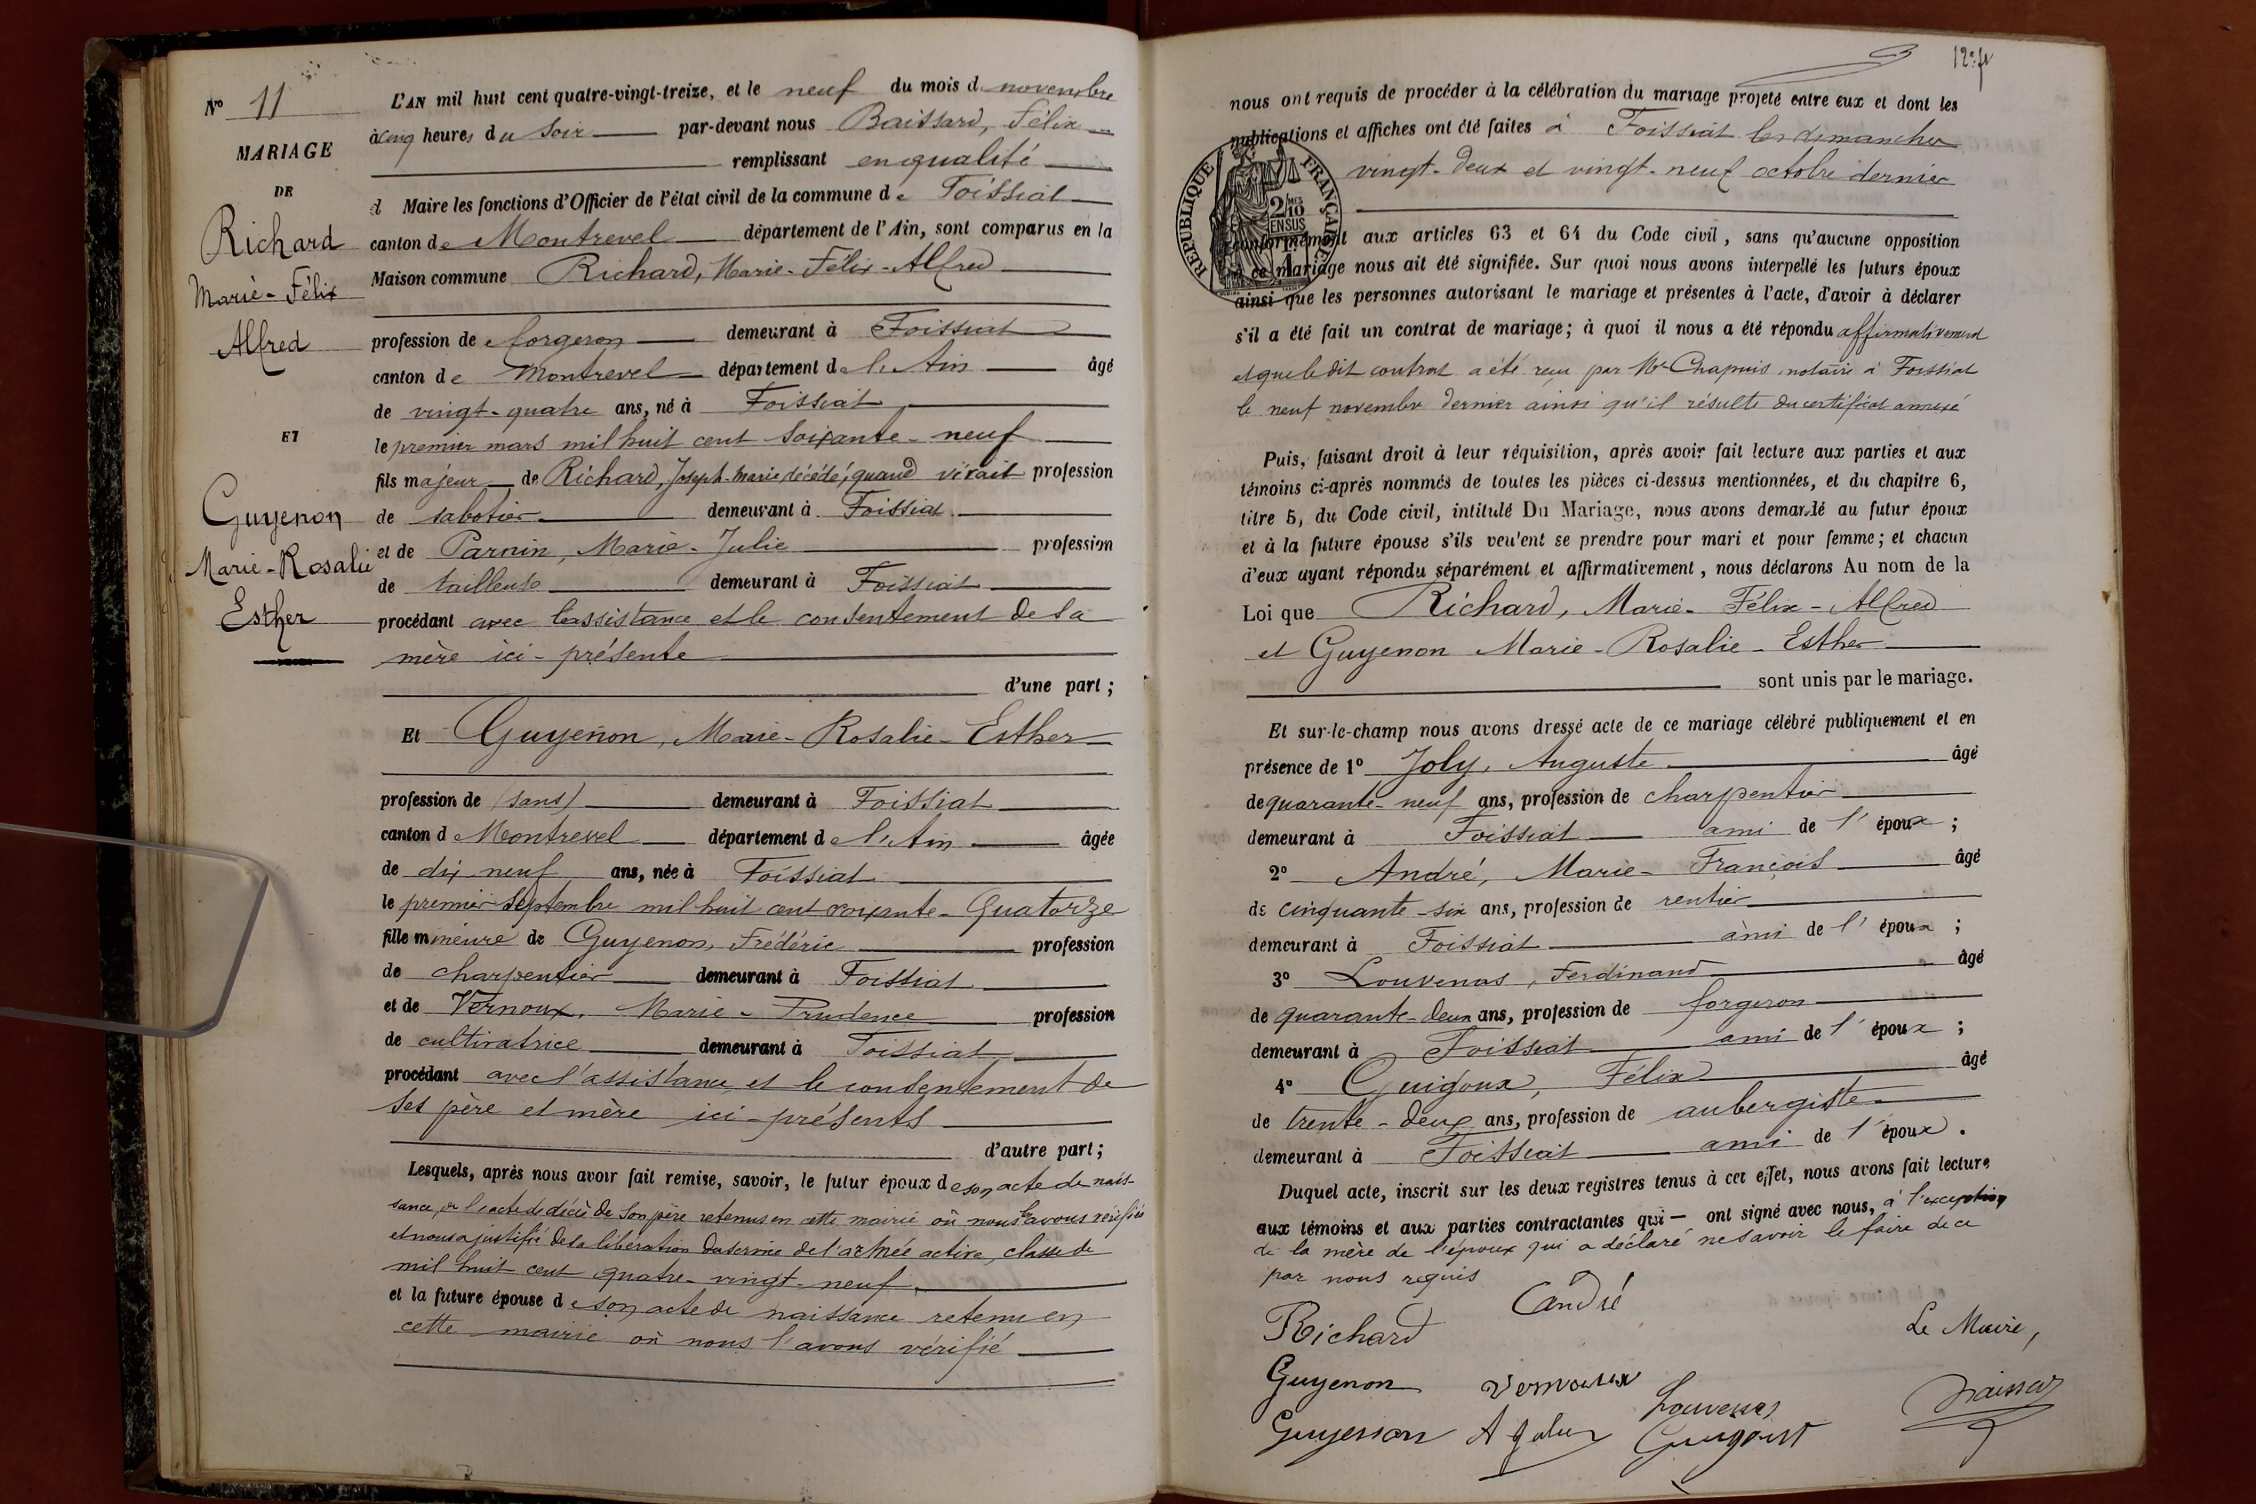 N° 11
MARIAGE
DE
Richard
Marie-Félix
Alfred
ET
Guyenon
Marie-Rosalie
Esther
L'AN mil huit cent quatre-vingt-treize, et le neuf du mois de novembre
à cinq heures du soir par-devant nous Baissard, Félix
remplissant en qualité
d Maire les fonctions d'Officier de l'état civil de la commune de Foissiat
canton de Montrevel département de l'Ain, sont comparus en la
Maison commune Richard, Marie-Félix-Alfred
profession de forgeron demeurant à Foissiat
canton de Montrevel département de l'Ain âgé
de vingt-quatre ans, né à Foissiat
le premier mars mil huit cent soixante-neuf
fils majeur de Richard, Joseph-Marie décédé, quand vivait profession
de sabotier demeurant à Foissiat
et de Parnin, Marie-Julie profession
de tailleuse demeurant à Foissiat
procédant avec l'assistance et le consentement de sa
mère ici-présente
d'une part;
Et Guyenon, Marie-Rosalie-Esther
profession de (sans) demeurant à Foissiat
canton de Montrevel département de l'Ain âgée
de dix neuf ans, née à Foissiat
le premier septembre mil huit cent soixante-quatorze
fille mineure de Guyenon, Frédéric profession
de charpentier demeurant à Foissiat
et de Vernoux, Marie-Prudence profession
de cultivatrice demeurant à Foissiat
procédant avec l'assistance et le consentement de
ses père et mère ici-présents
d'autre part;
Lesquels, après nous avoir fait remise, savoir, le futur époux de son acte de nais-
sance, de l'acte de décès de son père retenus en cette mairie où nous les avons vérifiés
et nous a justifié de sa libération du service de l'armée active, classe de
mil huit cent quatre-vingt-neuf,
et la future épouse de son acte de naissance retenu en
cette mairie où nous l'avons vérifié
nous ont requis de procéder à la célébration du mariage projeté entre eux et dont les
publications et affiches ont été faites à Foissiat les dimanches
vingt-deux et vingt-neuf octobre dernier
REPUBLIQUE FRANÇAISE
2/10 EN SUS
conformément aux articles 63 et 64 du Code civil, sans qu'aucune opposition
à ce mariage nous ait été signifiée. Sur quoi nous avons interpellé les futurs époux
ainsi que les personnes autorisant le mariage et présentes à l'acte, d'avoir à déclarer
s'il a été fait un contrat de mariage; à quoi il nous a été répondu affirmativement
et que le dit contrat a été reçu par Me Chapuis, notaire à Foissiat
le neuf novembre dernier ainsi qu'il résulte du certificat annexé
Puis, faisant droit à leur réquisition, après avoir fait lecture aux parties et aux
témoins ci-après nommés de toutes les pièces ci-dessus mentionnées, et du chapitre 6,
titre 5, du Code civil, intitulé Du Mariage, nous avons demandé au futur époux
et à la future épouse s'ils veulent se prendre pour mari et pour femme; et chacun
d'eux ayant répondu séparément et affirmativement, nous déclarons Au nom de la
Loi que Richard, Marie-Félix-Alfred
et Guyenon Marie-Rosalie-Esther
sont unis par le mariage.
Et sur-le-champ nous avons dressé acte de ce mariage célébré publiquement et en
présence de 1° Joly, Auguste âgé
de quarante-neuf ans, profession de charpentier
demeurant à Foissiat ami de l'époux;
2° André, Marie-François âgé
de cinquante-six ans, profession de rentier
demeurant à Foissiat ami de l'époux;
3° Louvenas, Ferdinand âgé
de quarante-deux ans, profession de forgeron
demeurant à Foissiat ami de l'époux;
4° Guigoux, Félix âgé
de trente-deux ans, profession de aubergiste
demeurant à Foissiat ami de l'époux.
Duquel acte, inscrit sur les deux registres tenus à cet effet, nous avons fait lecture
aux témoins et aux parties contractantes qui ont signé avec nous, à l'exception
de la mère de l'époux qui a déclaré ne savoir le faire de ce
par nous requis
Richard
André
Le Maire,
Guyenon
Vernoux
Louvenas
Baissard
Guyenon
Guigoux